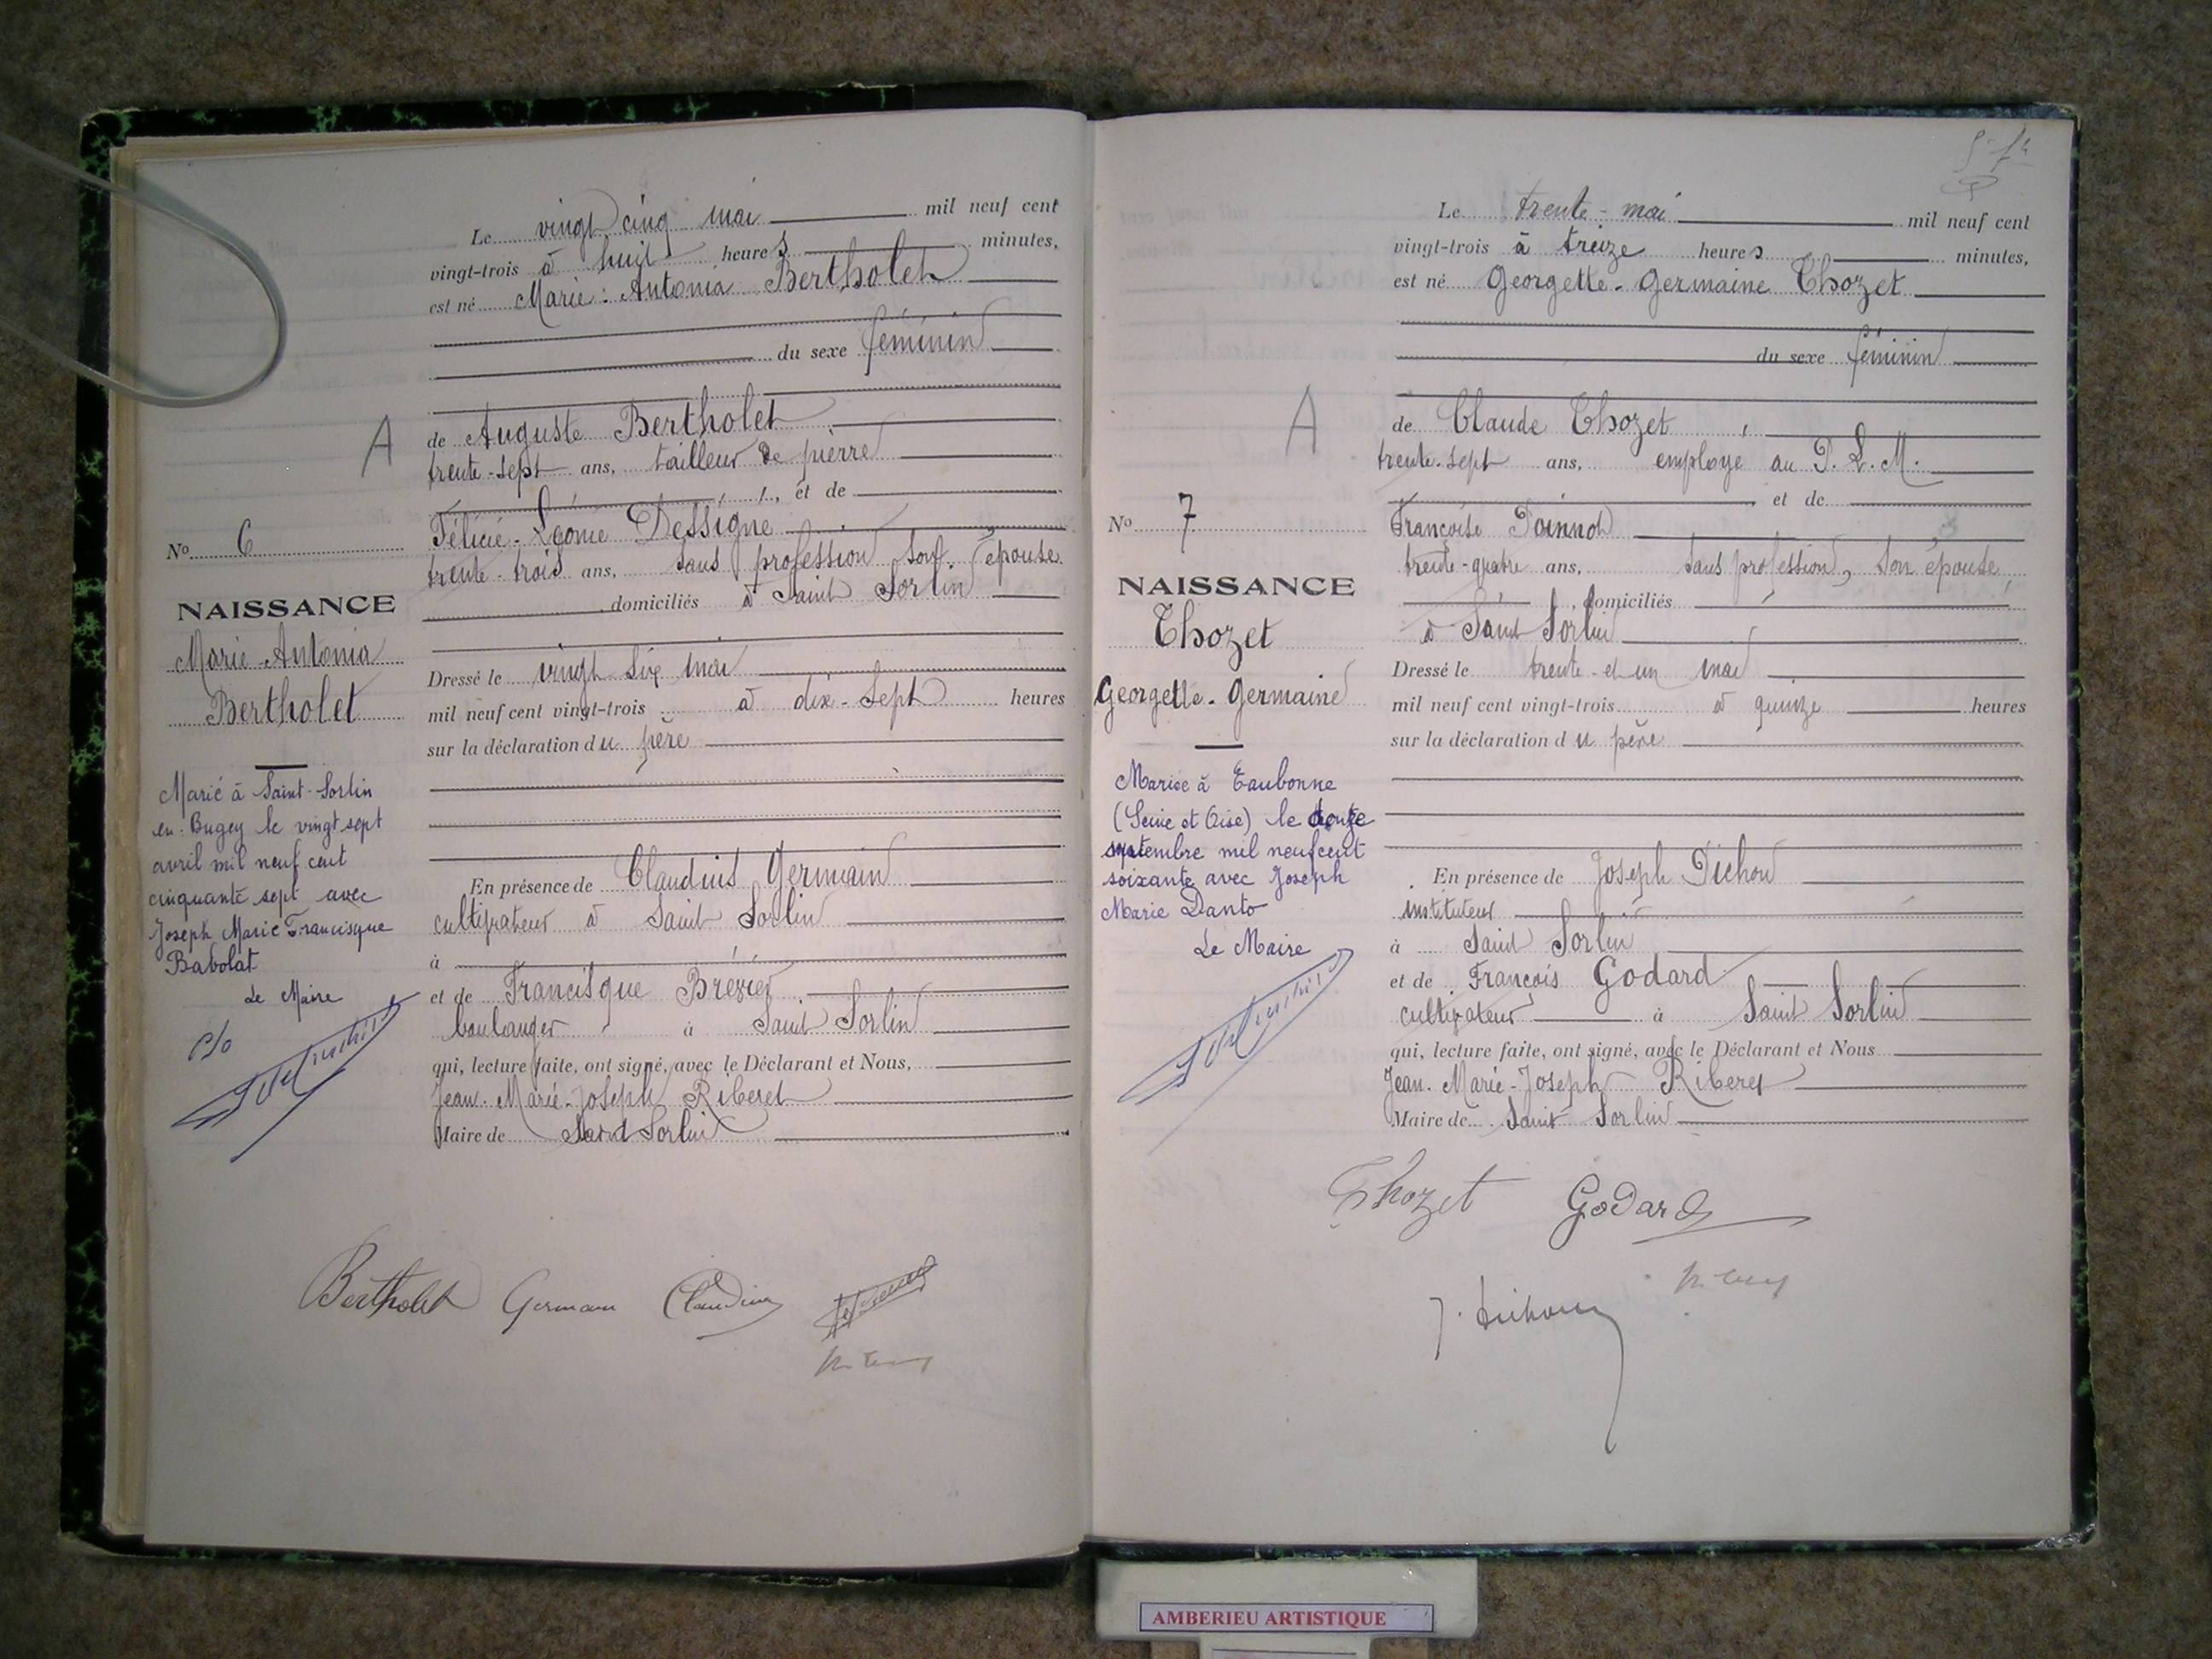 Le vingt cinq mai mil neuf cent
vingt-trois à huit heures minutes,
est né Marie-Antonia Bertholet
du sexe féminin
A
de Auguste Bertholet
trente-sept ans, tailleur de pierre
, et de
Félicie-Léonie Dessigne
trente-trois ans, sans profession son épouse
domiciliés à Saint Sorlin
Dressé le vingt-six mai
mil neuf cent vingt-trois à dix-sept heures
sur la déclaration du père
En présence de Claudius Germain
cultivateur à Saint Sorlin
à
et de Francisque Brézier
boulanger à Saint Sorlin
qui, lecture faite, ont signé, avec le Déclarant et Nous,
Jean-Marie-Joseph Riberet
Maire de Saint Sorlin
No 6
NAISSANCE
Marie Antonia
Bertholet
Marié à Saint-Sorlin
en-Bugey le vingt sept
avril mil neuf cent
cinquante sept avec
Joseph Marie Francisque
Babolat
Le Maire
Bertholet Germain Claudius
Le trente-mai mil neuf cent
vingt-trois à treize heures minutes,
est né Georgette-Germaine Thozet
du sexe féminin
A
de Claude Thozet,
trente-sept ans, employé au P.L.M.
et de
Françoise
trente-quatre ans, sans profession, son épouse
, domiciliés
à Saint Sorlin
Dressé le trente-et-un mai
mil neuf cent vingt-trois à quinze heures
sur la déclaration du père
En présence de Joseph Dichou
instituteur
à Saint Sorlin
et de François Godard
cultivateur à Saint Sorlin
qui, lecture faite, ont signé, avec le Déclarant et Nous
Jean-Marie-Joseph Riberet
Maire de Saint Sorlin
No 7
NAISSANCE
Thozet
Georgette-Germaine
Mariée à Eaubonne
(Seine et Oise) le
septembre mil neuf cent
soixante avec Joseph
Marie Danto
Le Maire
Thozet Godard
AMBERIEU ARTISTIQUE